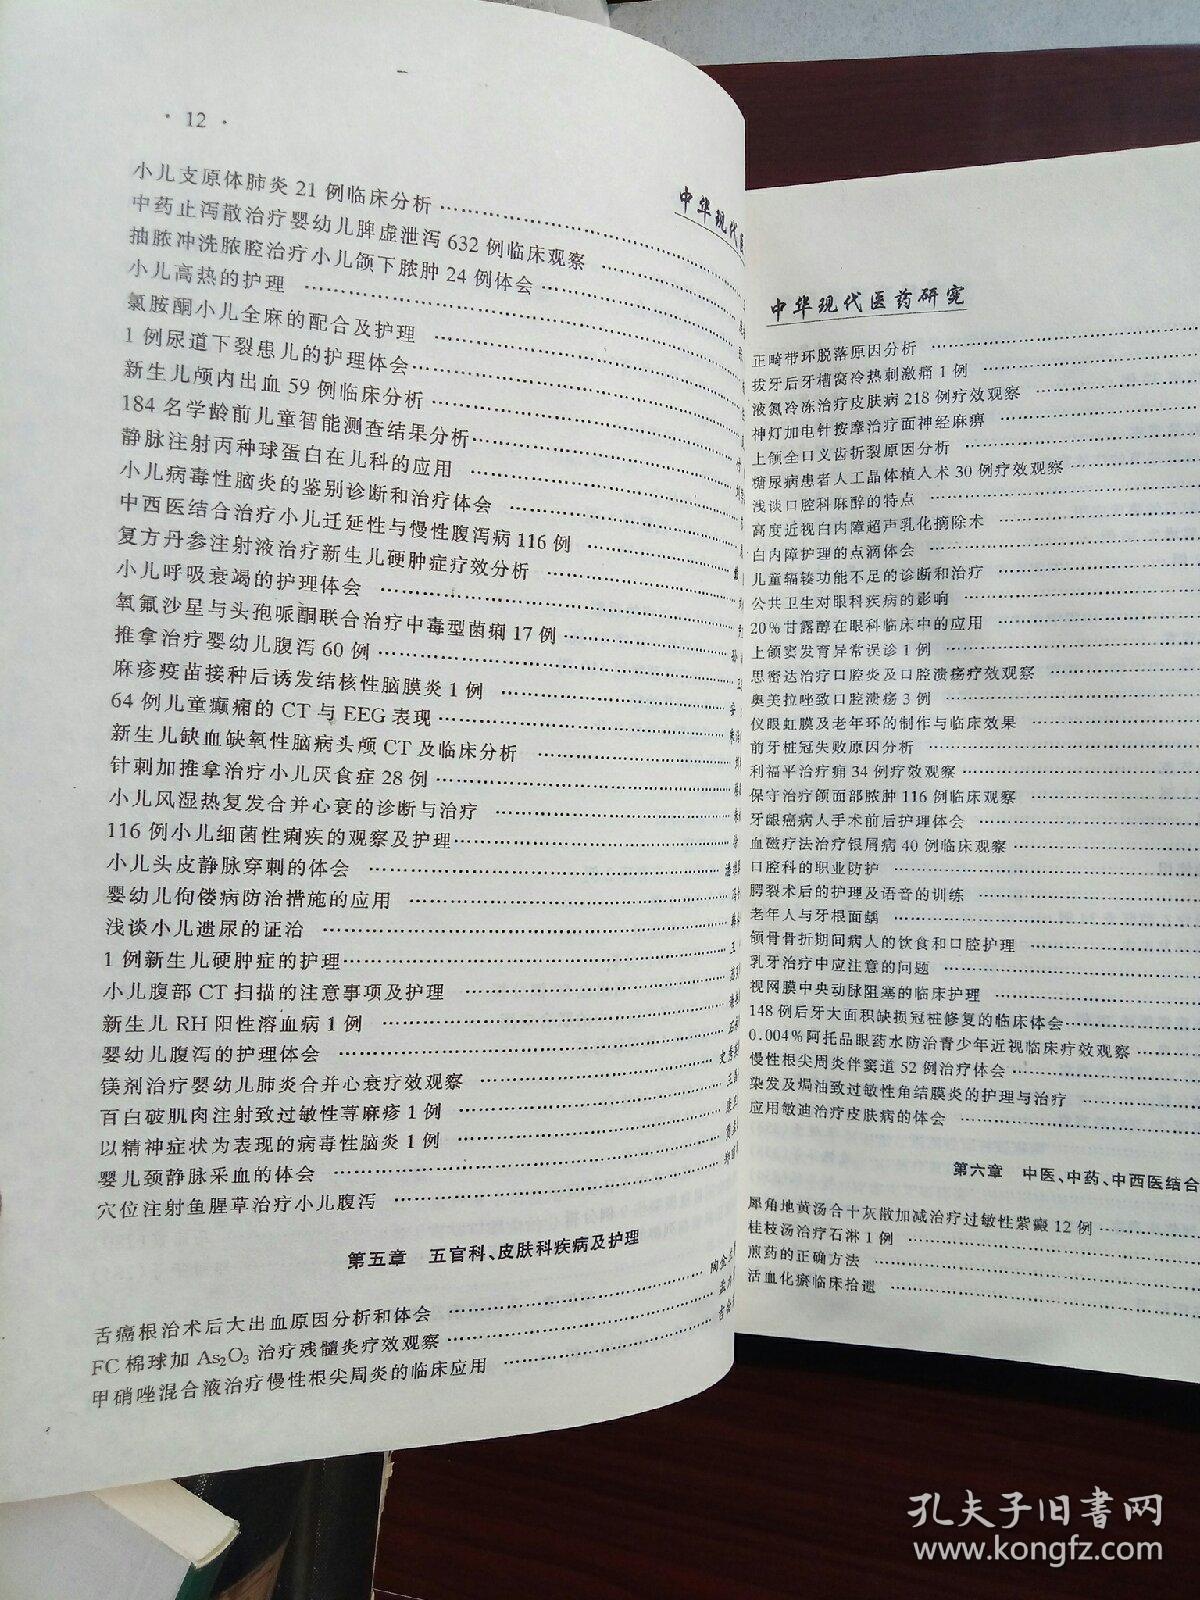 · 12 ·
中华现代医
小儿支原体肺炎 21 例临床分析
中药止泻散治疗婴幼儿脾虚泄泻 632 例临床观察
抽脓冲洗脓腔治疗小儿颌下脓肿 24 例体会
小儿高热的护理
氯胺酮小儿全麻的配合及护理
1 例尿道下裂患儿的护理体会
新生儿颅内出血 59 例临床分析
184 名学龄前儿童智能测查结果分析
静脉注射丙种球蛋白在儿科的应用
小儿病毒性脑炎的鉴别诊断和治疗体会
中西医结合治疗小儿迁延性与慢性腹泻病 116 例
复方丹参注射液治疗新生儿硬肿症疗效分析
小儿呼吸衰竭的护理体会
氧氟沙星与头孢哌酮联合治疗中毒型菌痢 17 例
推拿治疗婴幼儿腹泻 60 例
麻疹疫苗接种后诱发结核性脑膜炎 1 例
64 例儿童癫痫的 CT 与 EEG 表现
新生儿缺血缺氧性脑病头颅 CT 及临床分析
针刺加推拿治疗小儿厌食症 28 例
小儿风湿热复发合并心衰的诊断与治疗
116 例小儿细菌性痢疾的观察及护理
小儿头皮静脉穿刺的体会
婴幼儿佝偻病防治措施的应用
浅谈小儿遗尿的证治
1 例新生儿硬肿症的护理
小儿腹部 CT 扫描的注意事项及护理
新生儿 RH 阳性溶血病 1 例
婴幼儿腹泻的护理体会
镁剂治疗婴幼儿肺炎合并心衰疗效观察
百白破肌肉注射致过敏性荨麻疹 1 例
以精神症状为表现的病毒性脑炎 1 例
婴儿颈静脉采血的体会
穴位注射鱼腥草治疗小儿腹泻
第五章 五官科、皮肤科疾病及护理
舌癌根治术后大出血原因分析和体会
FC 棉球加 As₂O₃ 治疗残髓炎疗效观察
甲硝唑混合液治疗慢性根尖周炎的临床应用
中华现代医药研究
正畸带环脱落原因分析
拔牙后牙槽窝冷热刺激痛 1 例
液氮冷冻治疗皮肤病 218 例疗效观察
神灯加电针按摩治疗面神经麻痹
上颌全口义齿折裂原因分析
糖尿病患者人工晶体植入术 30 例疗效观察
浅谈口腔科麻醉的特点
高度近视白内障超声乳化摘除术
白内障护理的点滴体会
儿童辐辏功能不足的诊断和治疗
公共卫生对眼科疾病的影响
20%甘露醇在眼科临床中的应用
上颌窦发育异常误诊 1 例
思密达治疗口腔炎及口腔溃疡疗效观察
奥美拉唑致口腔溃疡 3 例
仪眼虹膜及老年环的制作与临床效果
前牙桩冠失败原因分析
利福平治疗疥 34 例疗效观察
保守治疗颌面部脓肿 116 例临床观察
牙龈癌病人手术前后护理体会
血磁疗法治疗银屑病 40 例临床观察
口腔科的职业防护
腭裂术后的护理及语音的训练
老年人与牙根面龋
颌骨骨折期间病人的饮食和口腔护理
乳牙治疗中应注意的问题
视网膜中央动脉阻塞的临床护理
148 例后牙大面积缺损冠桩修复的临床体会
0.004%阿托品眼药水防治青少年近视临床疗效观察
慢性根尖周炎伴窦道 52 例治疗体会
染发及焗油致过敏性角结膜炎的护理与治疗
应用敏迪治疗皮肤病的体会
第六章 中医、中药、中西医结合
犀角地黄汤合十灰散加减治疗过敏性紫癜 12 例
桂枝汤治疗石淋 1 例
煎药的正确方法
活血化瘀临床拾遗
孔夫子旧书网
www.kongfz.com